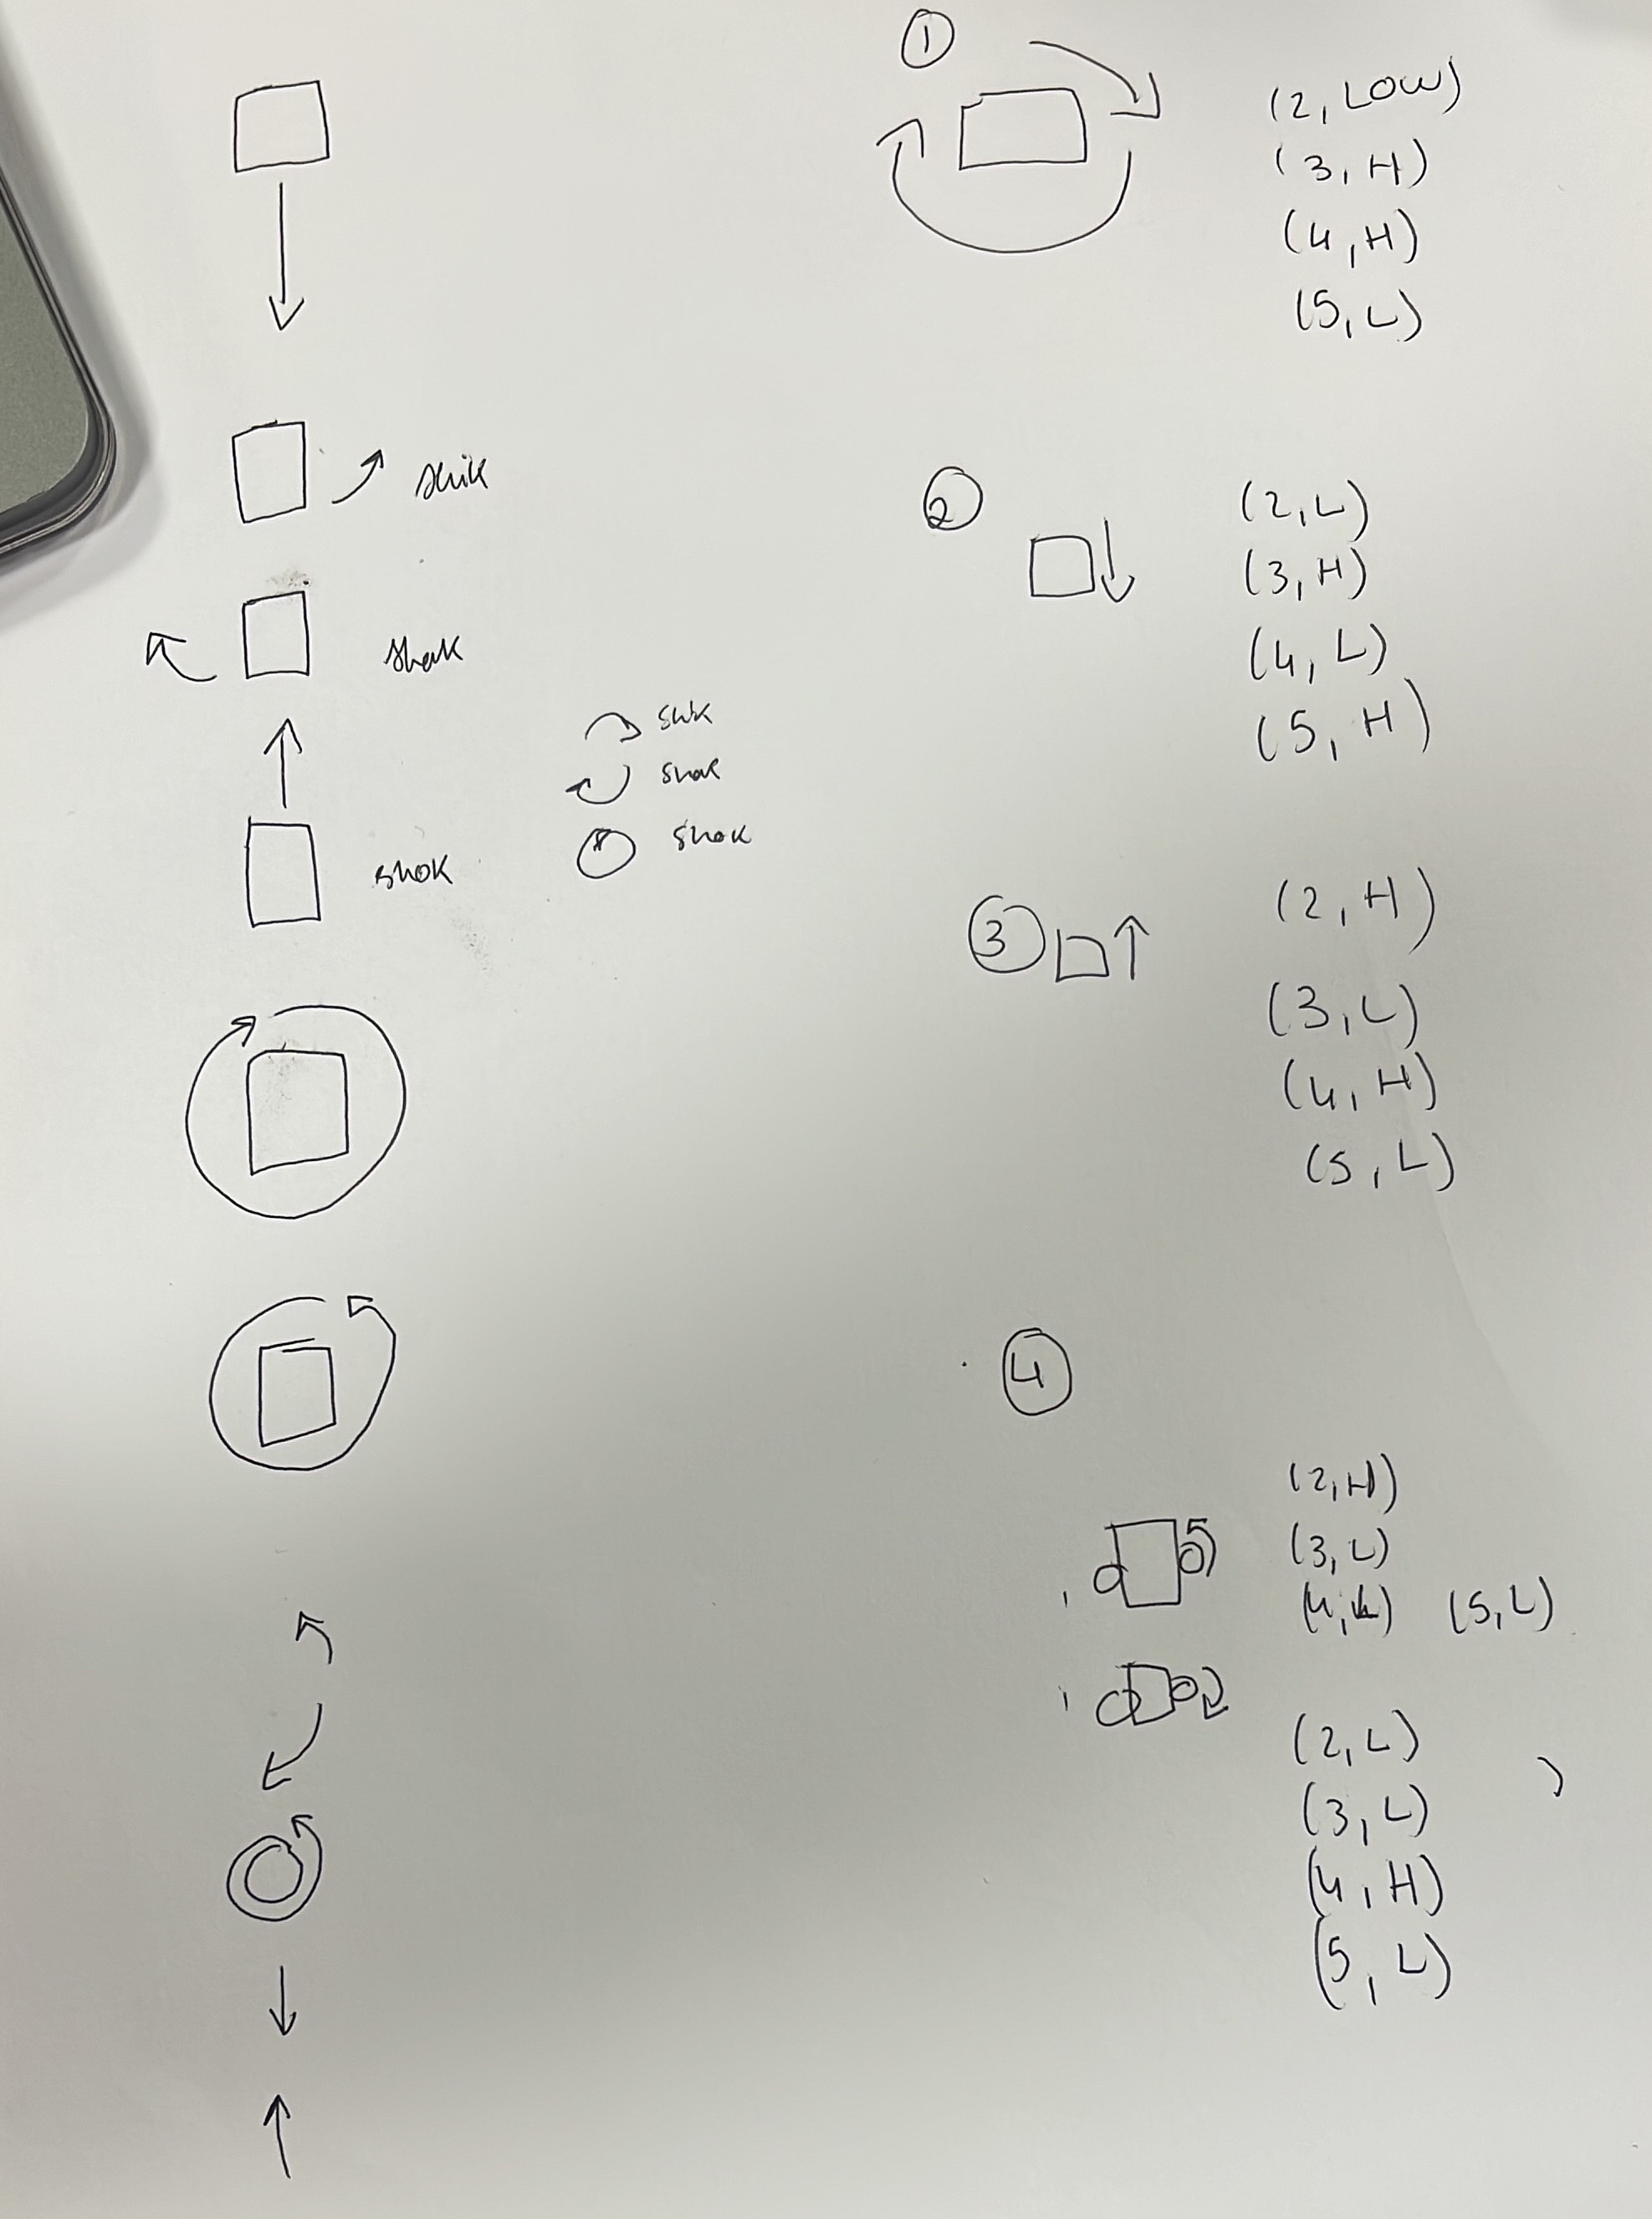 shik
shak
shok
shik
shak
shok
1
(2, LOW)
(3, H)
(4, H)
(5, L)
2
(2, L)
(3, H)
(4, L)
(5, H)
3
(2, H)
(3, L)
(4, H)
(5, L)
4
(2, H)
(3, L)
(4, L) (5, L)
(2, L)
(3, L)
(4, H)
(5, L)